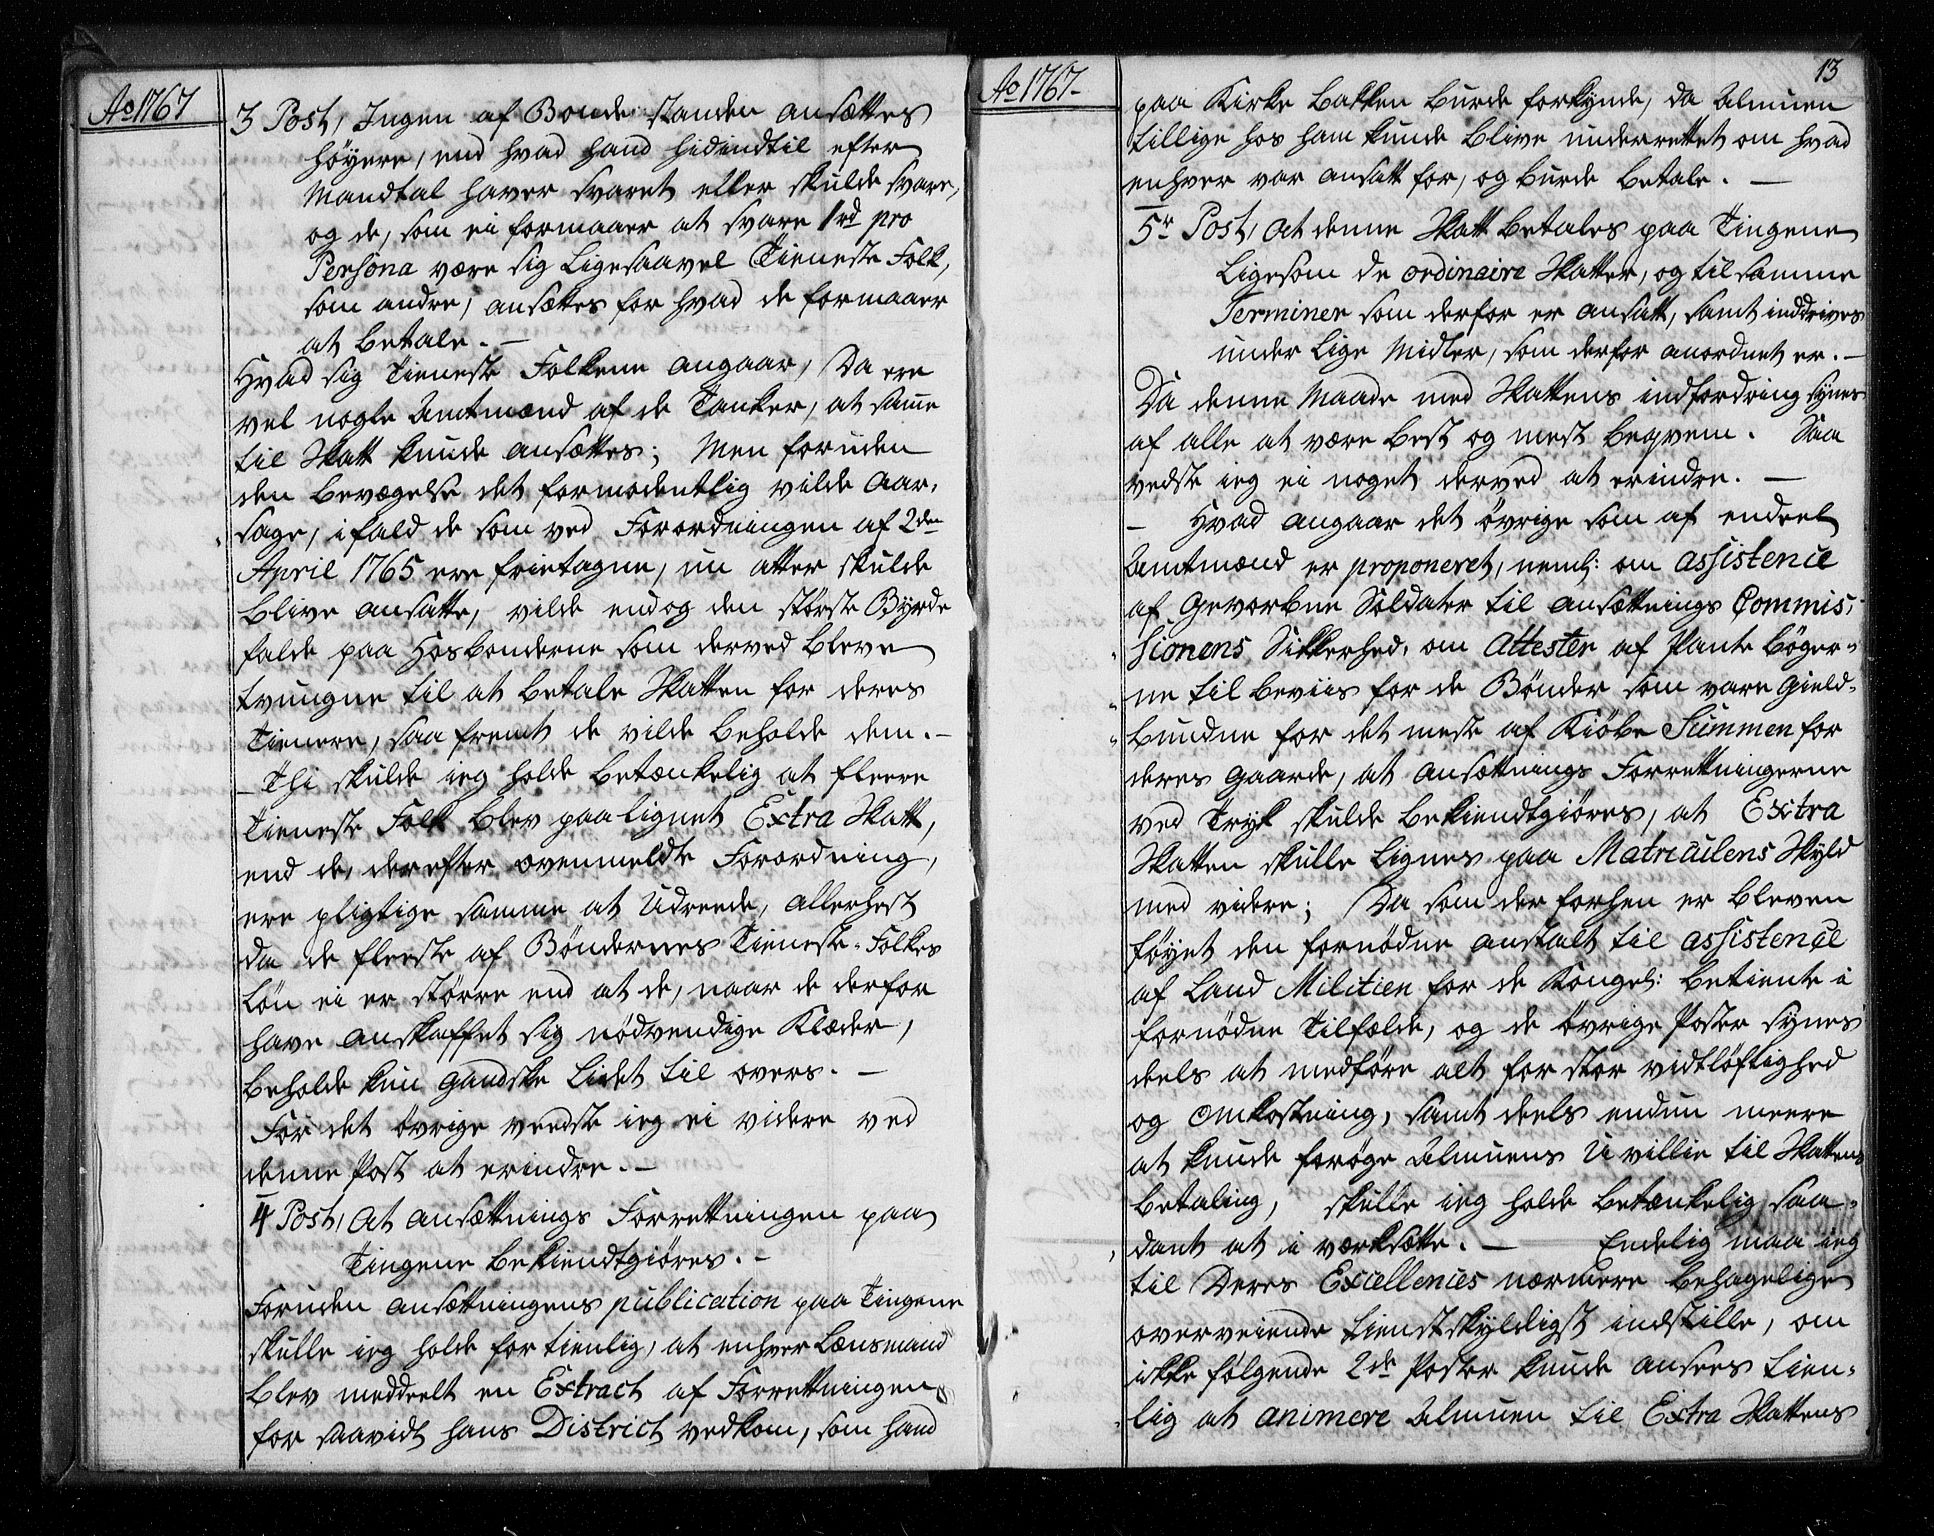 Ao 1767
3 Post, Ingen af Bonde standen ansættes
høyere, end hvad hand hidindtil efter
Mandtal haver svaret eller skulde svare,
og de, som ei formaaer at svare 1 rd pro
Persona være sig ligesaavel Tieneste Folk,
som andre, ansættes for hvad de formaaer
at betale. –
Hvad sig Tieneste Folkene angaar, Da ere
vel nogle Amtmænd af de Tanker, at samme
til Skatt kunde ansættes; Men foruden
den Bevægelse det formodentlig vilde aar,
sage, ifald de som ved Forordningen af 2den
April 1765 ere frietagne, nu atter skulde
blive ansatte, vilde endog den største Byrde
falde paa Hosbonderne som derved bleve
tvungne til at betale Skatten for deres
Tienere, saafremt de vilde beholde dem. –
– Thi skulde ieg holde betænkelig at fleere
Tieneste Folk blev paalignet Extra Skatt,
end de, der efter ovenmeldte Forordning,
ere pligtige samme at udreede, allerhest
da de fleeste af Bøndernes Tieneste-Folkes
Løn ei er større end at de, naar de derfor
have anskaffet sig nødvendige Klæder,
beholde kun gandske lidet til overs. –
For det øvrige veedste ieg ei videre ved
denne Post at erindre. –
4 Post, At ansættnings Forrettningen paa
Tingene bekiendtgiøres. –
Foruden ansættningens publication paa Tingene
skulle ieg holde for tienlig, at enhver Lænsmand
blev meddeelt en Extract af Forrettningen
for saavidt hans District vedkom, som hand
Ao 1767-
13
paa Kirke Bakken burde forkynde, da Almuen
tillige hos ham kunde blive underrettet om hvad
enhver var ansatt for, og burde betale. –
5r Post, At denne Skatt betales paa Tingene
ligesom de ordinaire Skatter, og til samme
Terminer som derfor er ansatt, samt inddrives
under lige Midler, som derfor anordnet er. –
Da denne Maade med Skattens indfordring synes
af alle at være best og mest beqvem. Saa
vedste ieg ei noget derved at erindre. –
– Hvad angaar det øvrige som af endeel
Amtmænd er proponeret, neml: om assistence
af Gevorbne Soldater til ansættnings Commis,
sionens Sikkerhed, om Attester af Pante bøger-
ne til beviis for de Bønder som vare gield-
bundne for det meste af Kiøbe Summen for
deres gaarde, at ansættnings Forrettningerne
ved Tryk skulde bekiendtgiøres, at Extra
Skatten skulle lignes paa Matriculens Skyld
med videre; Da som der forhen er bleven
føyet den fornødne anstalt til assistence
af Land Militien for de Kongel: betiente i
fornødne Tilfælde, og de øvrige Poster synes
deels at medføre alt for stor vidtløftighed
og omkostning, samt deels endnu meere
at kunde forøge Almuens Uvillie til Skattens
betaling, skulle ieg holde betænkelig saa-
dant at i værksætte. – Endelig maa ieg
til Deres Excellences nærmere behagelige
overveiende tienstskyldigst indstille, om
ikke følgende 2de Poster kunde ansees tien-
lig at animere Almuen til Extra Skattens